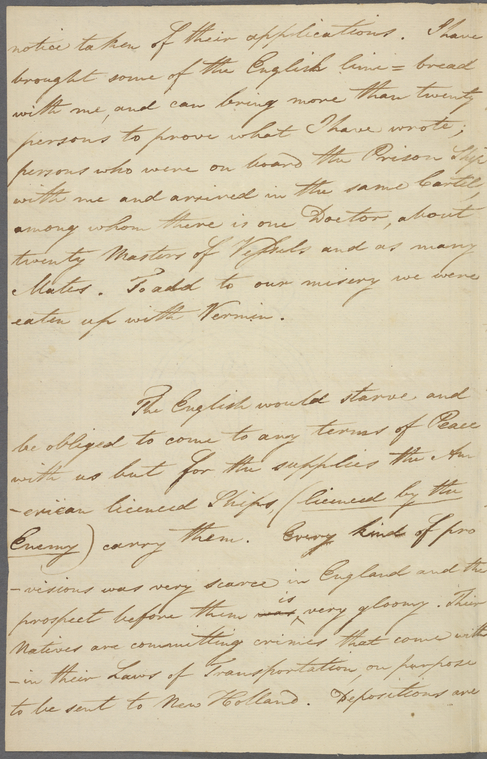 notice taken of their applications. I have
brought some of the English lime = bread
with me, and can bring more than twenty
persons to prove what I have wrote;
persons who were on board the Prison Ship
with me and arrived in the same Cartel,
among whom there is one Doctor, about
twenty Masters of Vessels and as many
Mates. To add to our misery we were
eaten up with Vermin.
The English would starve and
be obliged to come to any terms of Peace
with us but for the supplies the Am
-erican licenced Ships (licenced by the
Enemy) carry them. Every kind of pro
-visions was very scarce in England and the
prospect before them was is very gloomy. Their
Natives are committing crimes that come with
-in their Laws of Transportation, on purpose
to be sent to New Holland. Depositions are